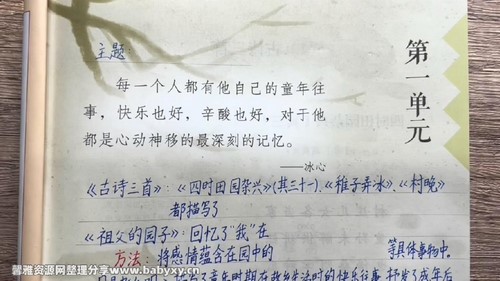 主题:
第一单元
每一个人都有他自己的童年往
事，快乐也好，辛酸也好，对于他
都是心动神移的最深刻的记忆。
——冰心
《古诗三首》:《四时田园杂兴》(共三十一)、《稚子弄冰》、《村晚》
都描写了
《祖父的园子》: 回忆了"我"在
方法: 将感情蕴含在园中的 等具体事物中。
了童年时期在故乡生活时的快乐往事,抒发了成年后
馨雅资源网整理分享www.babyxy.cn